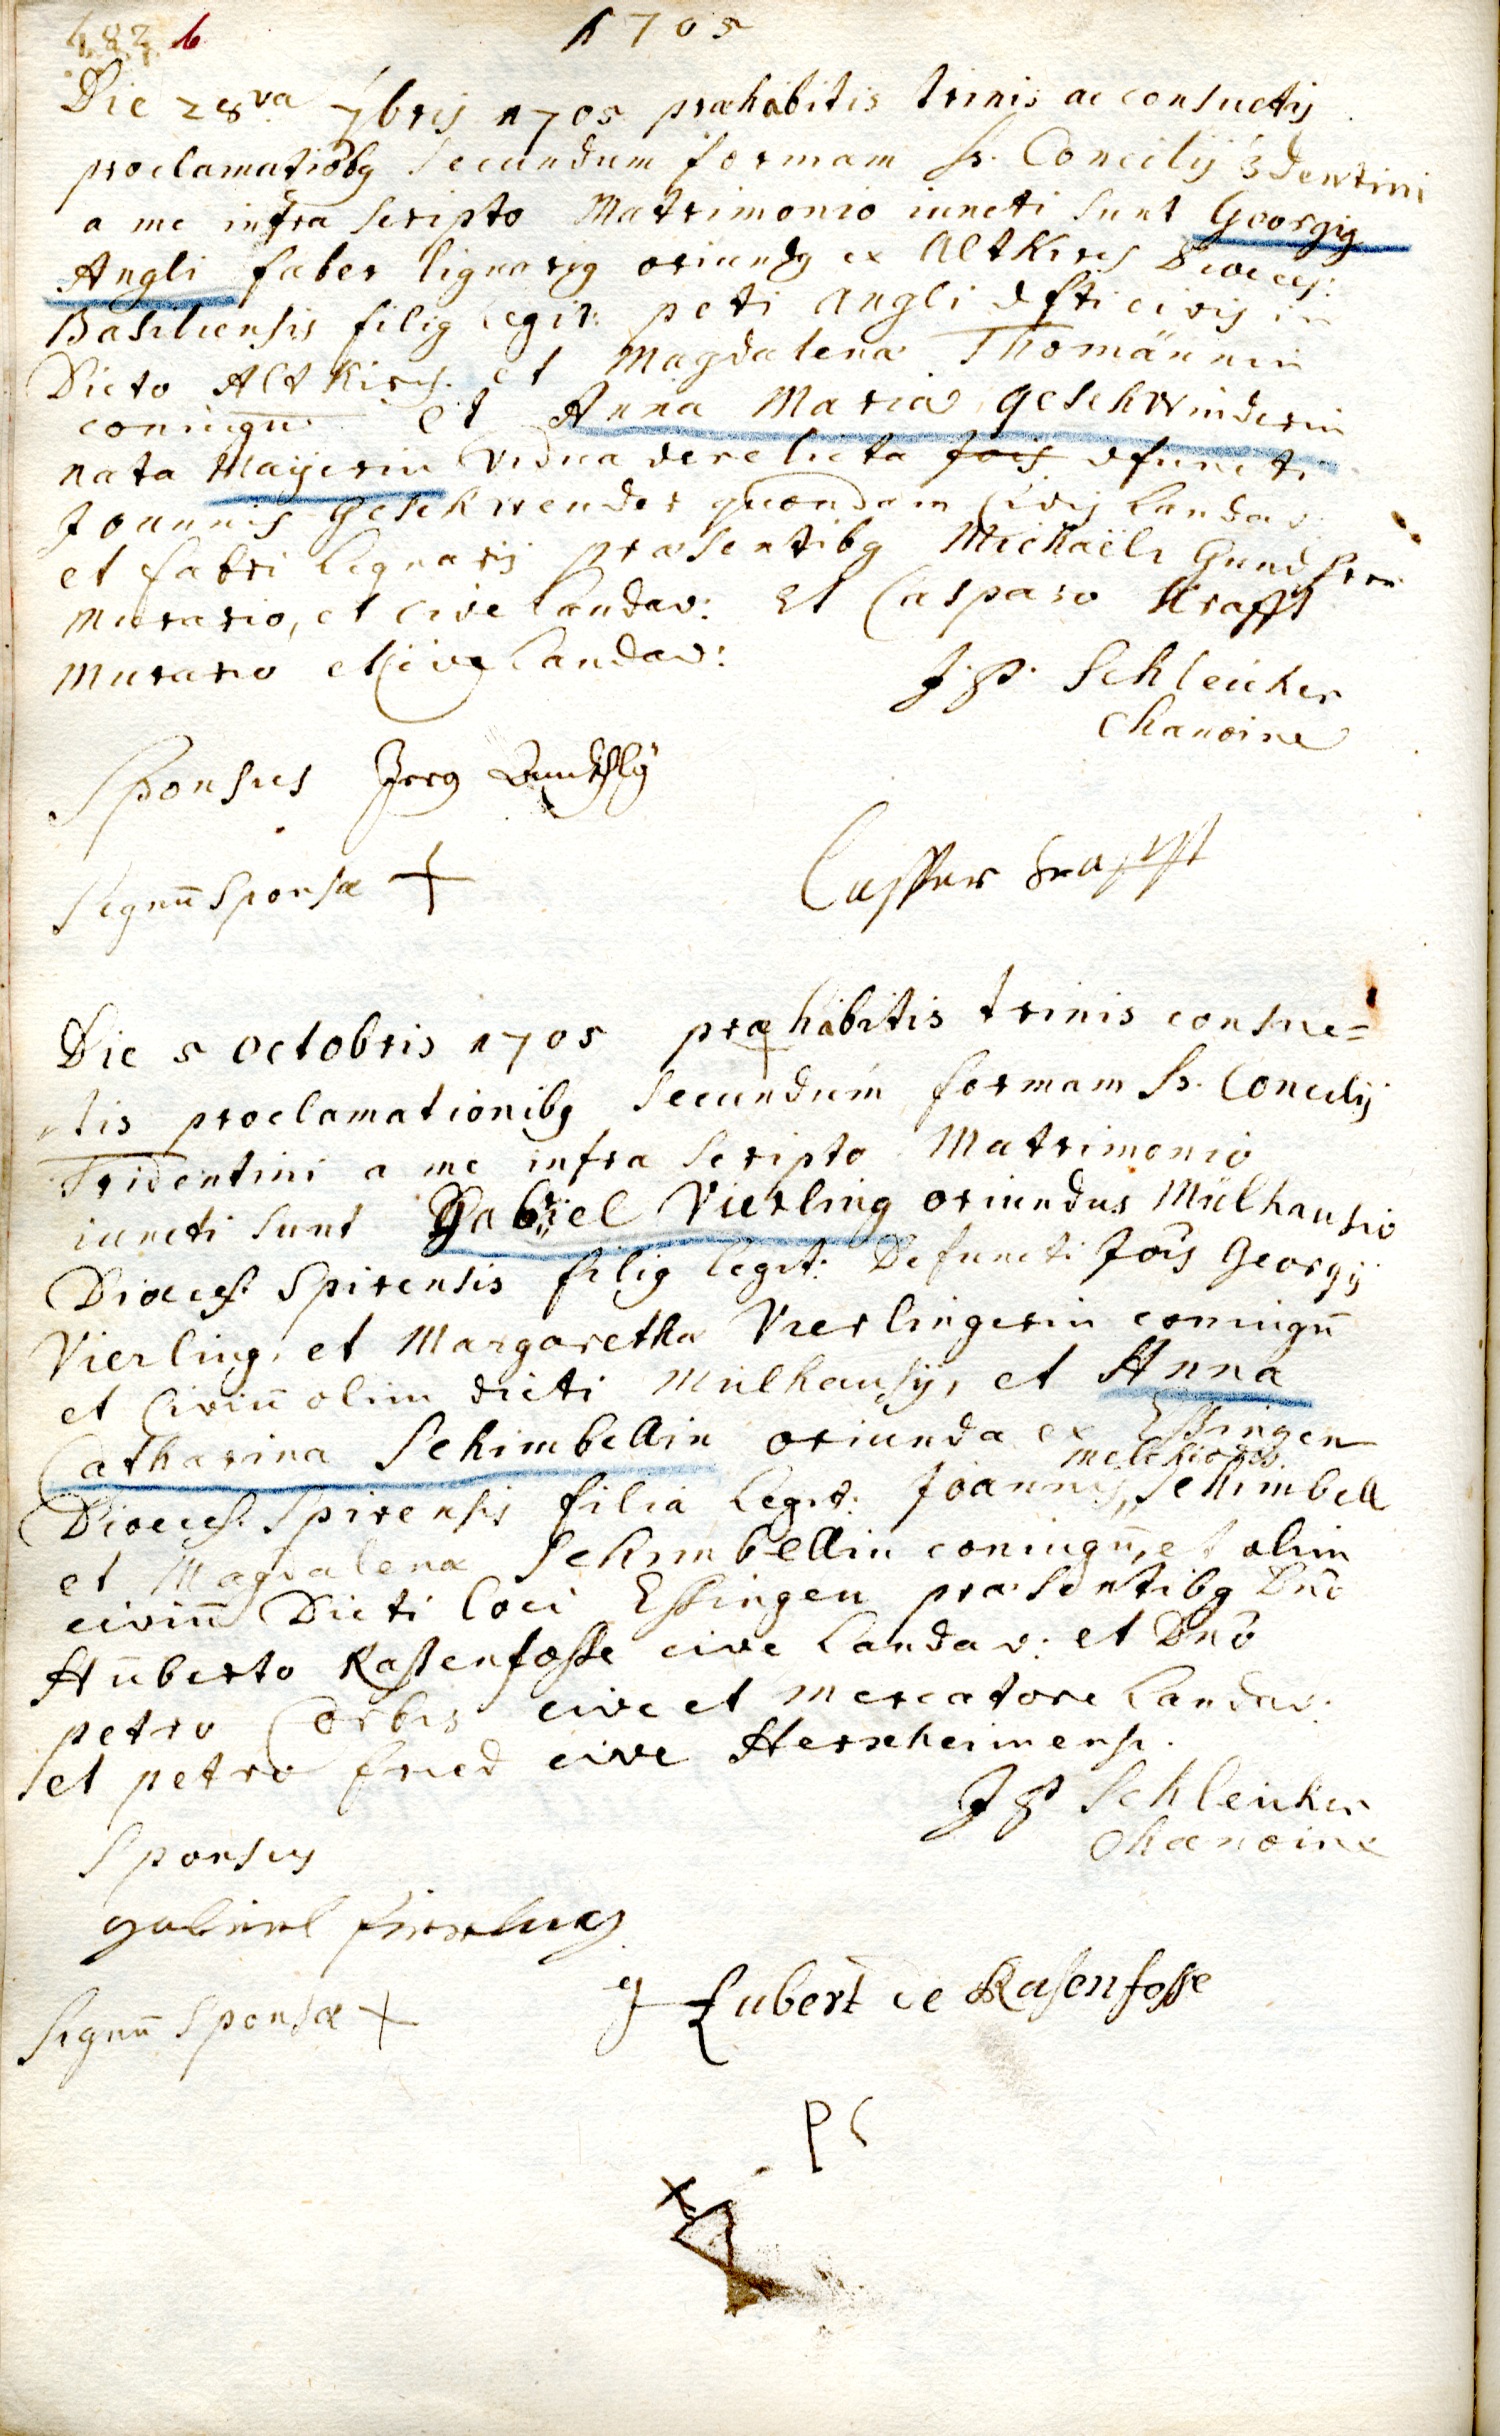 482 b
1705
Die 28va 7bris 1705 præhabitis trinis ac consuetis
proclamatiobg secundum formam Ss. Concilij 3dentini
a me infra scripto Matrimonio iuncti sunt Georgig
Angli faber lignarig oriundg ex AltKirch Diæces:
Basiliensis filig legit: peti Angli dfti civis in
Dicto AltKirch. et Magdalena Thomännin
coniugū. et Anna Maria geschwinderin
nata Maÿerin Vidua derelicta Jois dfuncti
Joannis Geschwender quondam Civis Landav:
et fabri lignarij præsentibg Michaële
Murario, et cive Landav: Et Casparo Krafft
Murario et Cive Landav:
J. P. Schleicker
Chanoine
Sponsus Jerg
Signū Sponsæ +
Casper Krafft
Die 5 Octobris 1705 præhabitis trinis consue=
tis proclamationibg secundum formam Ss. Concilij
Tridentini a me infra scripto Matrimonio
iuncti sunt Gabriel Vierling oriundus Mülhausio
Diæces. Spirensis filig legit: Defuncti Jois Georgij
Vierling, et Margaretha Vierlingerin coniugū
et Civiū olim dicti Mülhausij, et Anna
Catharina Schimbellin oriunda ex Essingen
melchioris
Diæces. Spirensis filia legit: Joannis,, Schimbell
et Magdalena Schimbellin coniugū, et olim
civiū Dicti loci Essingen præsentibg Dno
Huberto Rassenfosse cive Landav: et Dno
petro Corbis cive et mercatore Landav:
et petro fried cive Herxheimens.
J P Schleicker
Chanoine
Sponsus
gabriel fierling
Signū Sponsæ +
Hubert de Rasenfosse
P C